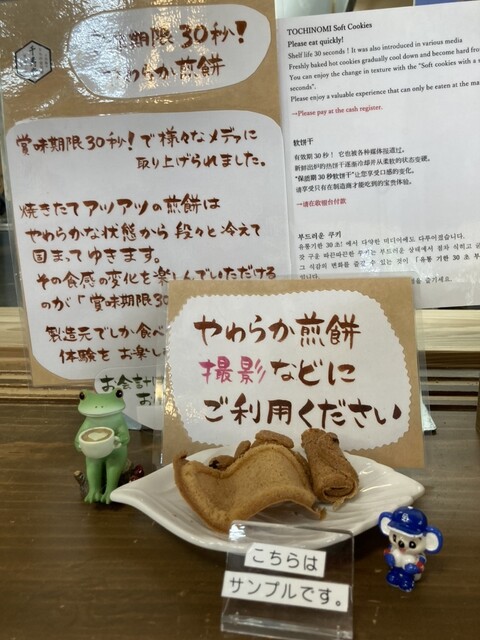 賞味期限30秒!
やわらか煎餅
賞味期限30秒!で様々なメディアに
取り上げられました。
焼きたてアツアツの煎餅は
やわらかな状態から段々と冷えて
固まってゆきます。
その食感の変化を楽しんでいただける
のが「賞味期限30
製造元でしか食べ
体験をお楽し
お会計
お
TOCHINOMI Soft Cookies
Please eat quickly!
Shelf life 30 seconds ! It was also introduced in various media
Freshly baked hot cookies gradually cool down and become hard from
You can enjoy the change in texture with the "Soft cookies with a s
seconds".
Please enjoy a valuable experience that can only be eaten at the ma
→Please pay at the cash register.
软饼干
有效期 30 秒！ 它也被各种媒体报道过。
新鲜出炉的热饼干逐渐冷却并从柔软的状态变硬。
“保质期 30 秒软饼干”让您享受口感的变化。
请享受只有在制造商才能吃到的宝贵体验。
→请在收银台付款
부드러운 쿠키
유통기한 30 초! 에서 다양한 미디어에도 다루어졌습니다.
갓 구운 따끈따끈한 쿠키는 부드러운 상태에서 점차 식히고 굳
그 식감의 변화를 즐길 수 있는 것이 「유통 기한 30 초 부
입니다.
을 즐기세요.
やわらか煎餅
撮影などに
ご利用ください
こちらは
サンプルです。